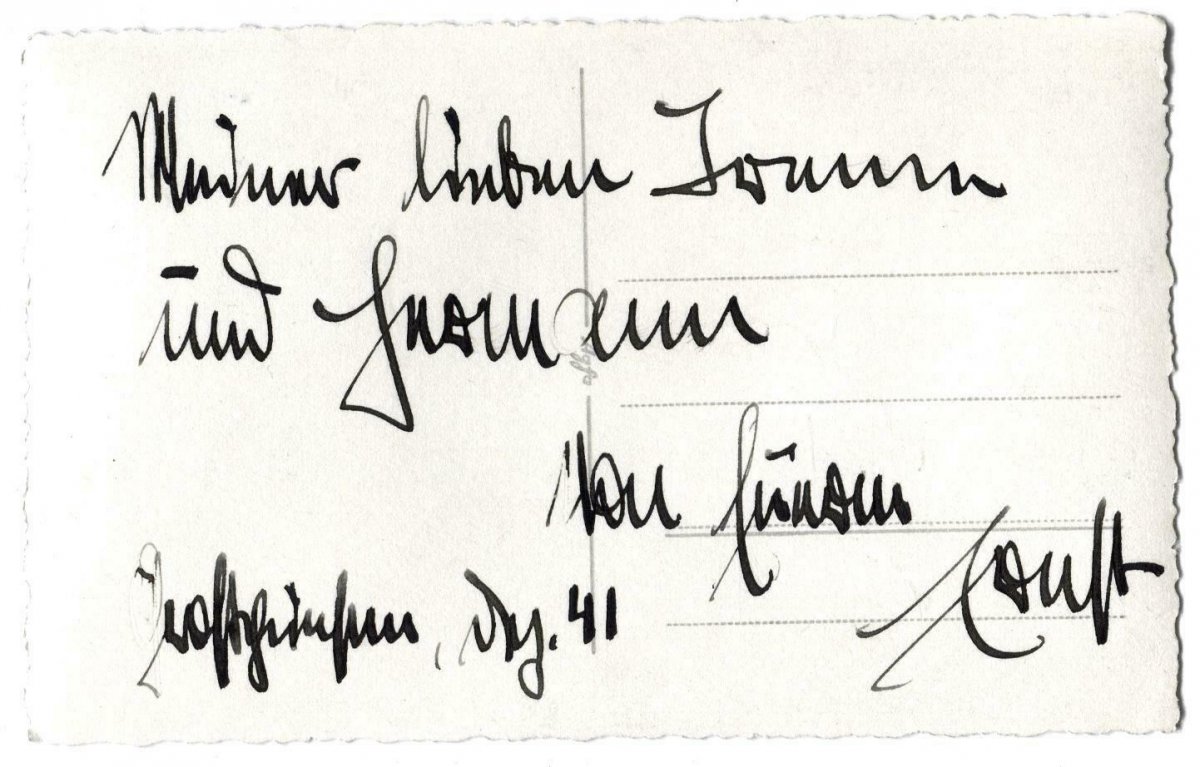 Meiner lieben Irene
und Hermann
Von Eurem
Ernst
, Dez. 41